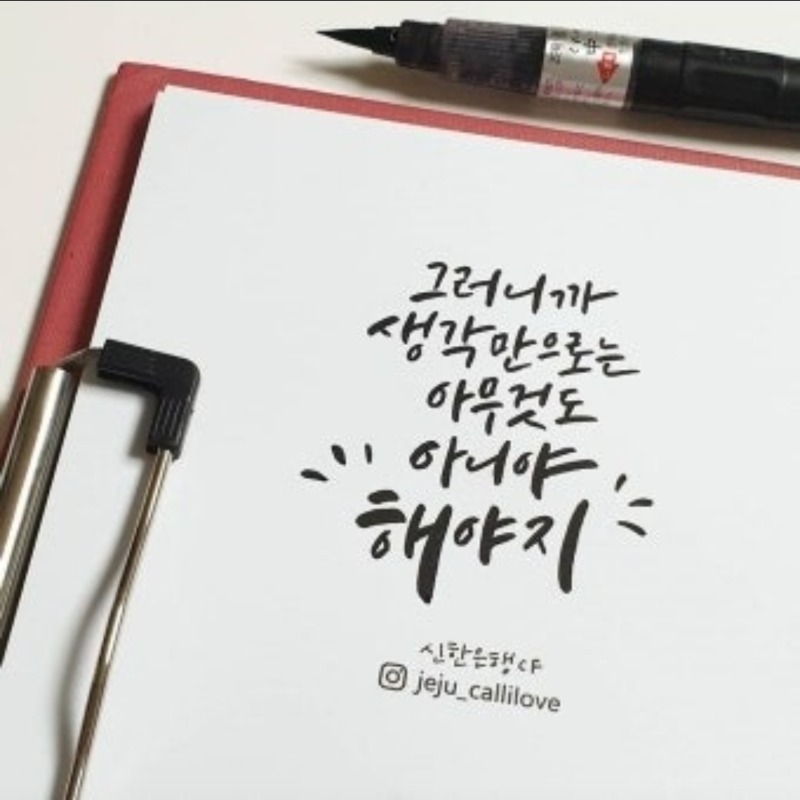 그러니까
생각만으로는
아무것도
아니야
해야지
신한은행 CF
jeju_callilove